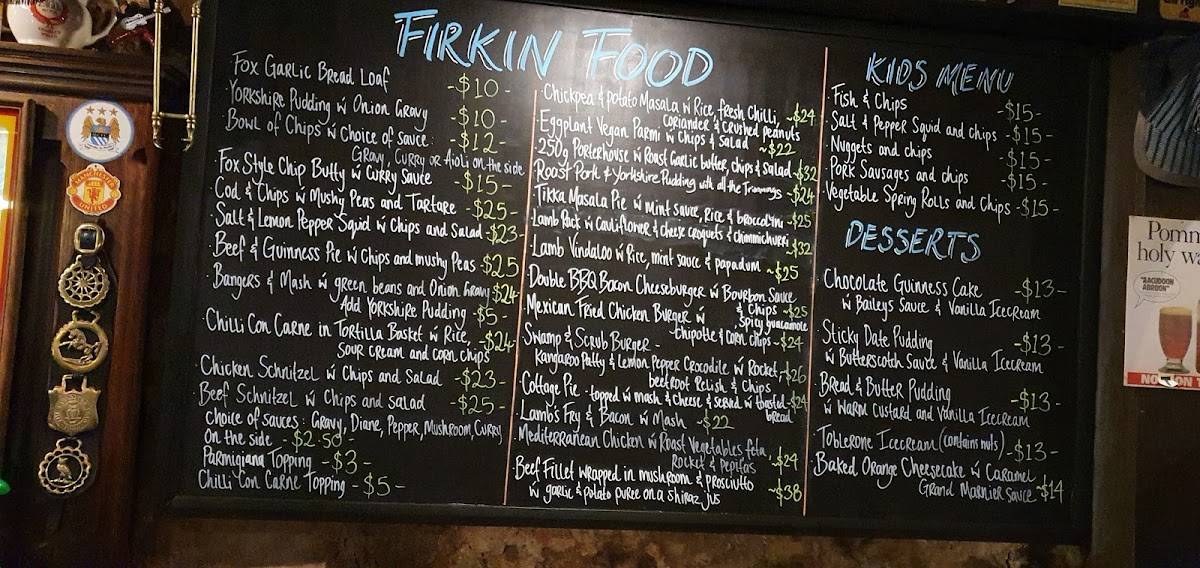 FIRKIN FOOD
Fox Garlic Bread Loaf -$10-
Yorkshire Pudding w Onion Gravy -$10-
Bowl of Chips w Choice of sauce: -$12
Gravy, Curry or Aioli on the side
Fox Style Chip Butty w Curry Sauce -$15-
Cod & Chips w Mushy Peas and Tartare -$25-
Salt & Lemon Pepper Squid w Chips and Salad -$23-
Beef & Guinness Pie w Chips and mushy Peas -$25
Bangers & Mash w green beans and Onion Gravy $24
Add Yorkshire Pudding -$5-
Chilli Con Carne in Tortilla Basket w Rice, -$24
Sour cream and corn chips
Chicken Schnitzel w Chips and Salad -$23-
Beef Schnitzel w Chips and salad -$25-
Choice of sauces: Gravy, Diane, Pepper, Mushroom, Curry
On the side -$2.50-
Parmigiana Topping -$3-
Chilli Con Carne Topping -$5-
Chickpea & potato Masala w Rice, fresh Chilli, ~$24
coriander & crushed peanuts
Eggplant Vegan Parmi w Chips & Salad ~$22
250g Porterhouse w Roast Garlic butter, chips & Salad $32
Roast Pork & Yorkshire Pudding with all the Trimmings ~$24
Tikka Masala Pie w Mint sauce, Rice & broccolini -$25
Lamb Rack w Cauliflower & cheese croquets & chimmichurri ~$32
Lamb Vindaloo w Rice, mint sauce & papadum ~$25
Double BBQ Bacon Cheeseburger w Bourbon Sauce
& Chips -$25
Mexican Fried Chicken Burger w Spicy guacamole
Chipotle & Corn chips -$24
Swamp & Scrub Burger -
Kangaroo Patty & Lemon Pepper Crocodile w Rocket, -$26
beetroot Relish & Chips
Cottage Pie - topped w mash & cheese & served w toasted ~$24
bread
Lamb's Fry & Bacon w Mash -$22
Mediterranean Chicken w Roast Vegetables feta,
Rocket & Pepitas ~$24
Beef Fillet wrapped in mushroom & prosciutto
w garlic & potato puree on a shiraz jus ~$38
KIDS MENU
Fish & Chips -$15-
Salt & Pepper Squid and chips -$15-
Nuggets and chips -$15-
Pork Sausages and chips -$15-
Vegetable Spring Rolls and Chips -$15-
DESSERTS
Chocolate Guinness Cake -$13-
w Baileys Sauce & Vanilla Icecream
Sticky Date Pudding -$13-
w Butterscotch Sauce & Vanilla Icecream
Bread & Butter Pudding -$13-
w Warm Custard and Vanilla Icecream
Toblerone Icecream (contains nuts) -$13-
Baked Orange Cheesecake w Caramel
Grand Marnier Sauce ~$14
MANCHESTER
UNITED
Pomm
holy wa